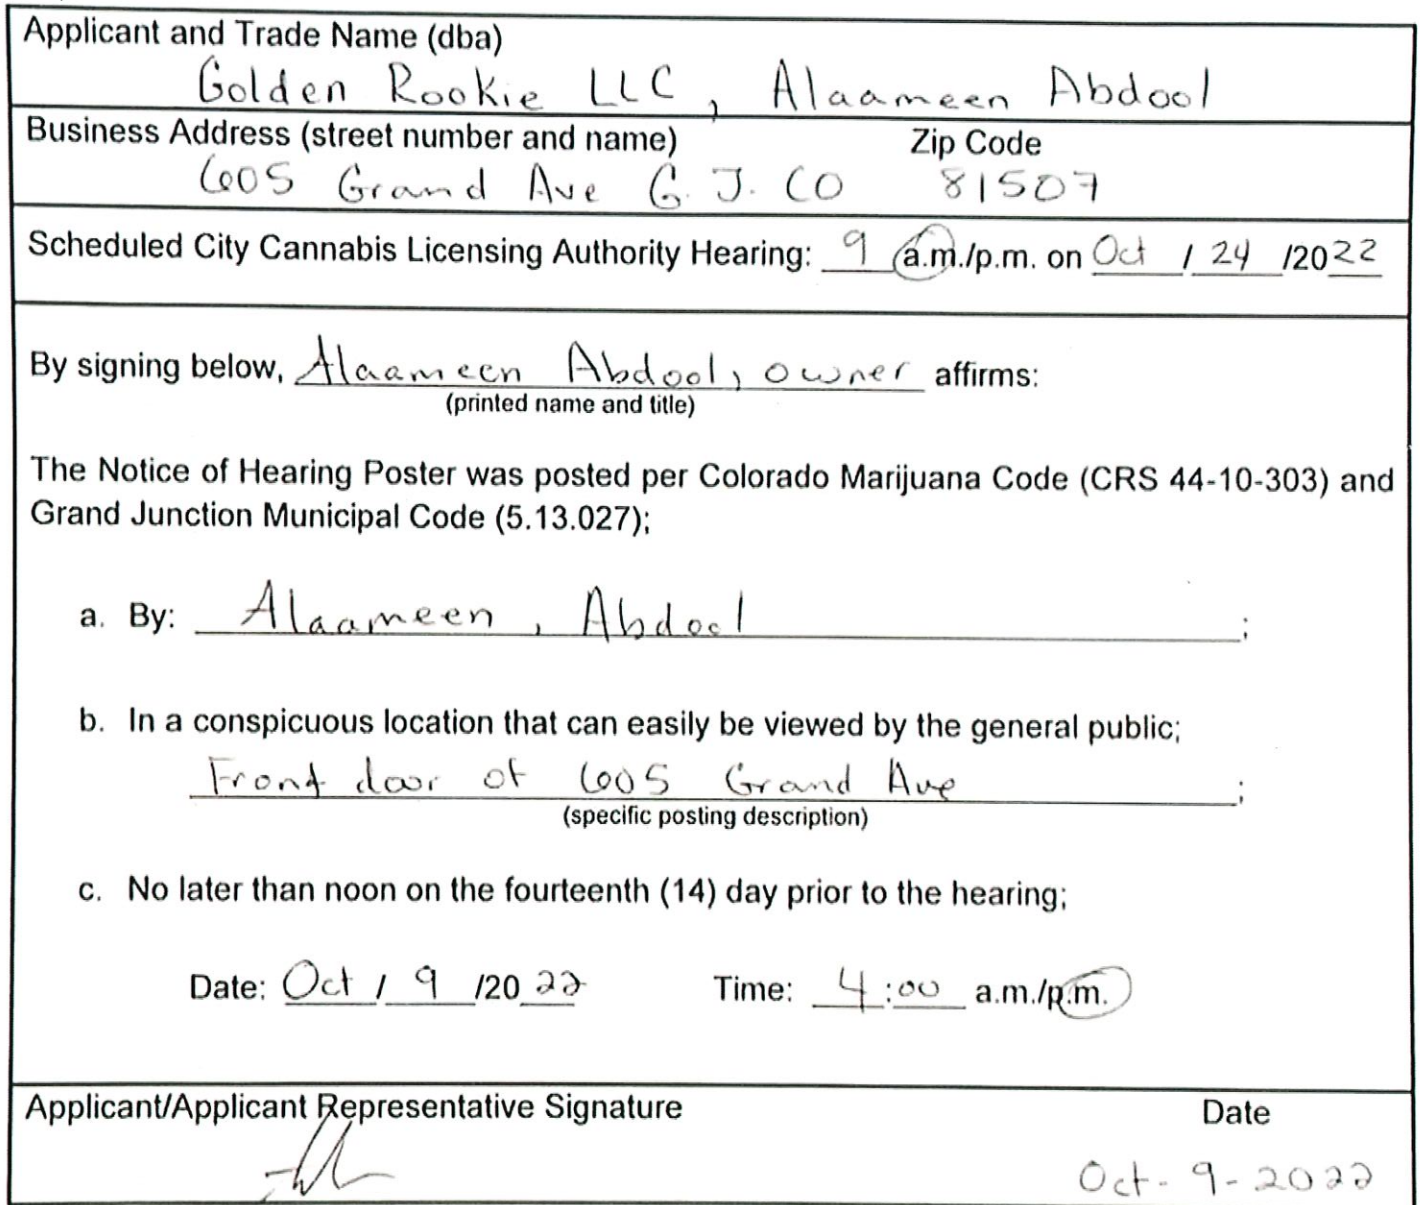 Applicant and Trade Name (dba)
Golden Rookie LLC, Alaameen Abdool
Business Address (street number and name) Zip Code
605 Grand Ave G.J. CO 81507
Scheduled City Cannabis Licensing Authority Hearing: 9 a.m./p.m. on Oct / 24 /2022
By signing below, Alaameen Abdool, owner affirms:
(printed name and title)
The Notice of Hearing Poster was posted per Colorado Marijuana Code (CRS 44-10-303) and
Grand Junction Municipal Code (5.13.027);
a. By: Alaameen, Abdool ;
b. In a conspicuous location that can easily be viewed by the general public;
Front door of 605 Grand Ave ;
(specific posting description)
c. No later than noon on the fourteenth (14) day prior to the hearing;
Date: Oct / 9 /2022 Time: 4:00 a.m./p.m.
Applicant/Applicant Representative Signature Date
Oct-9-2022